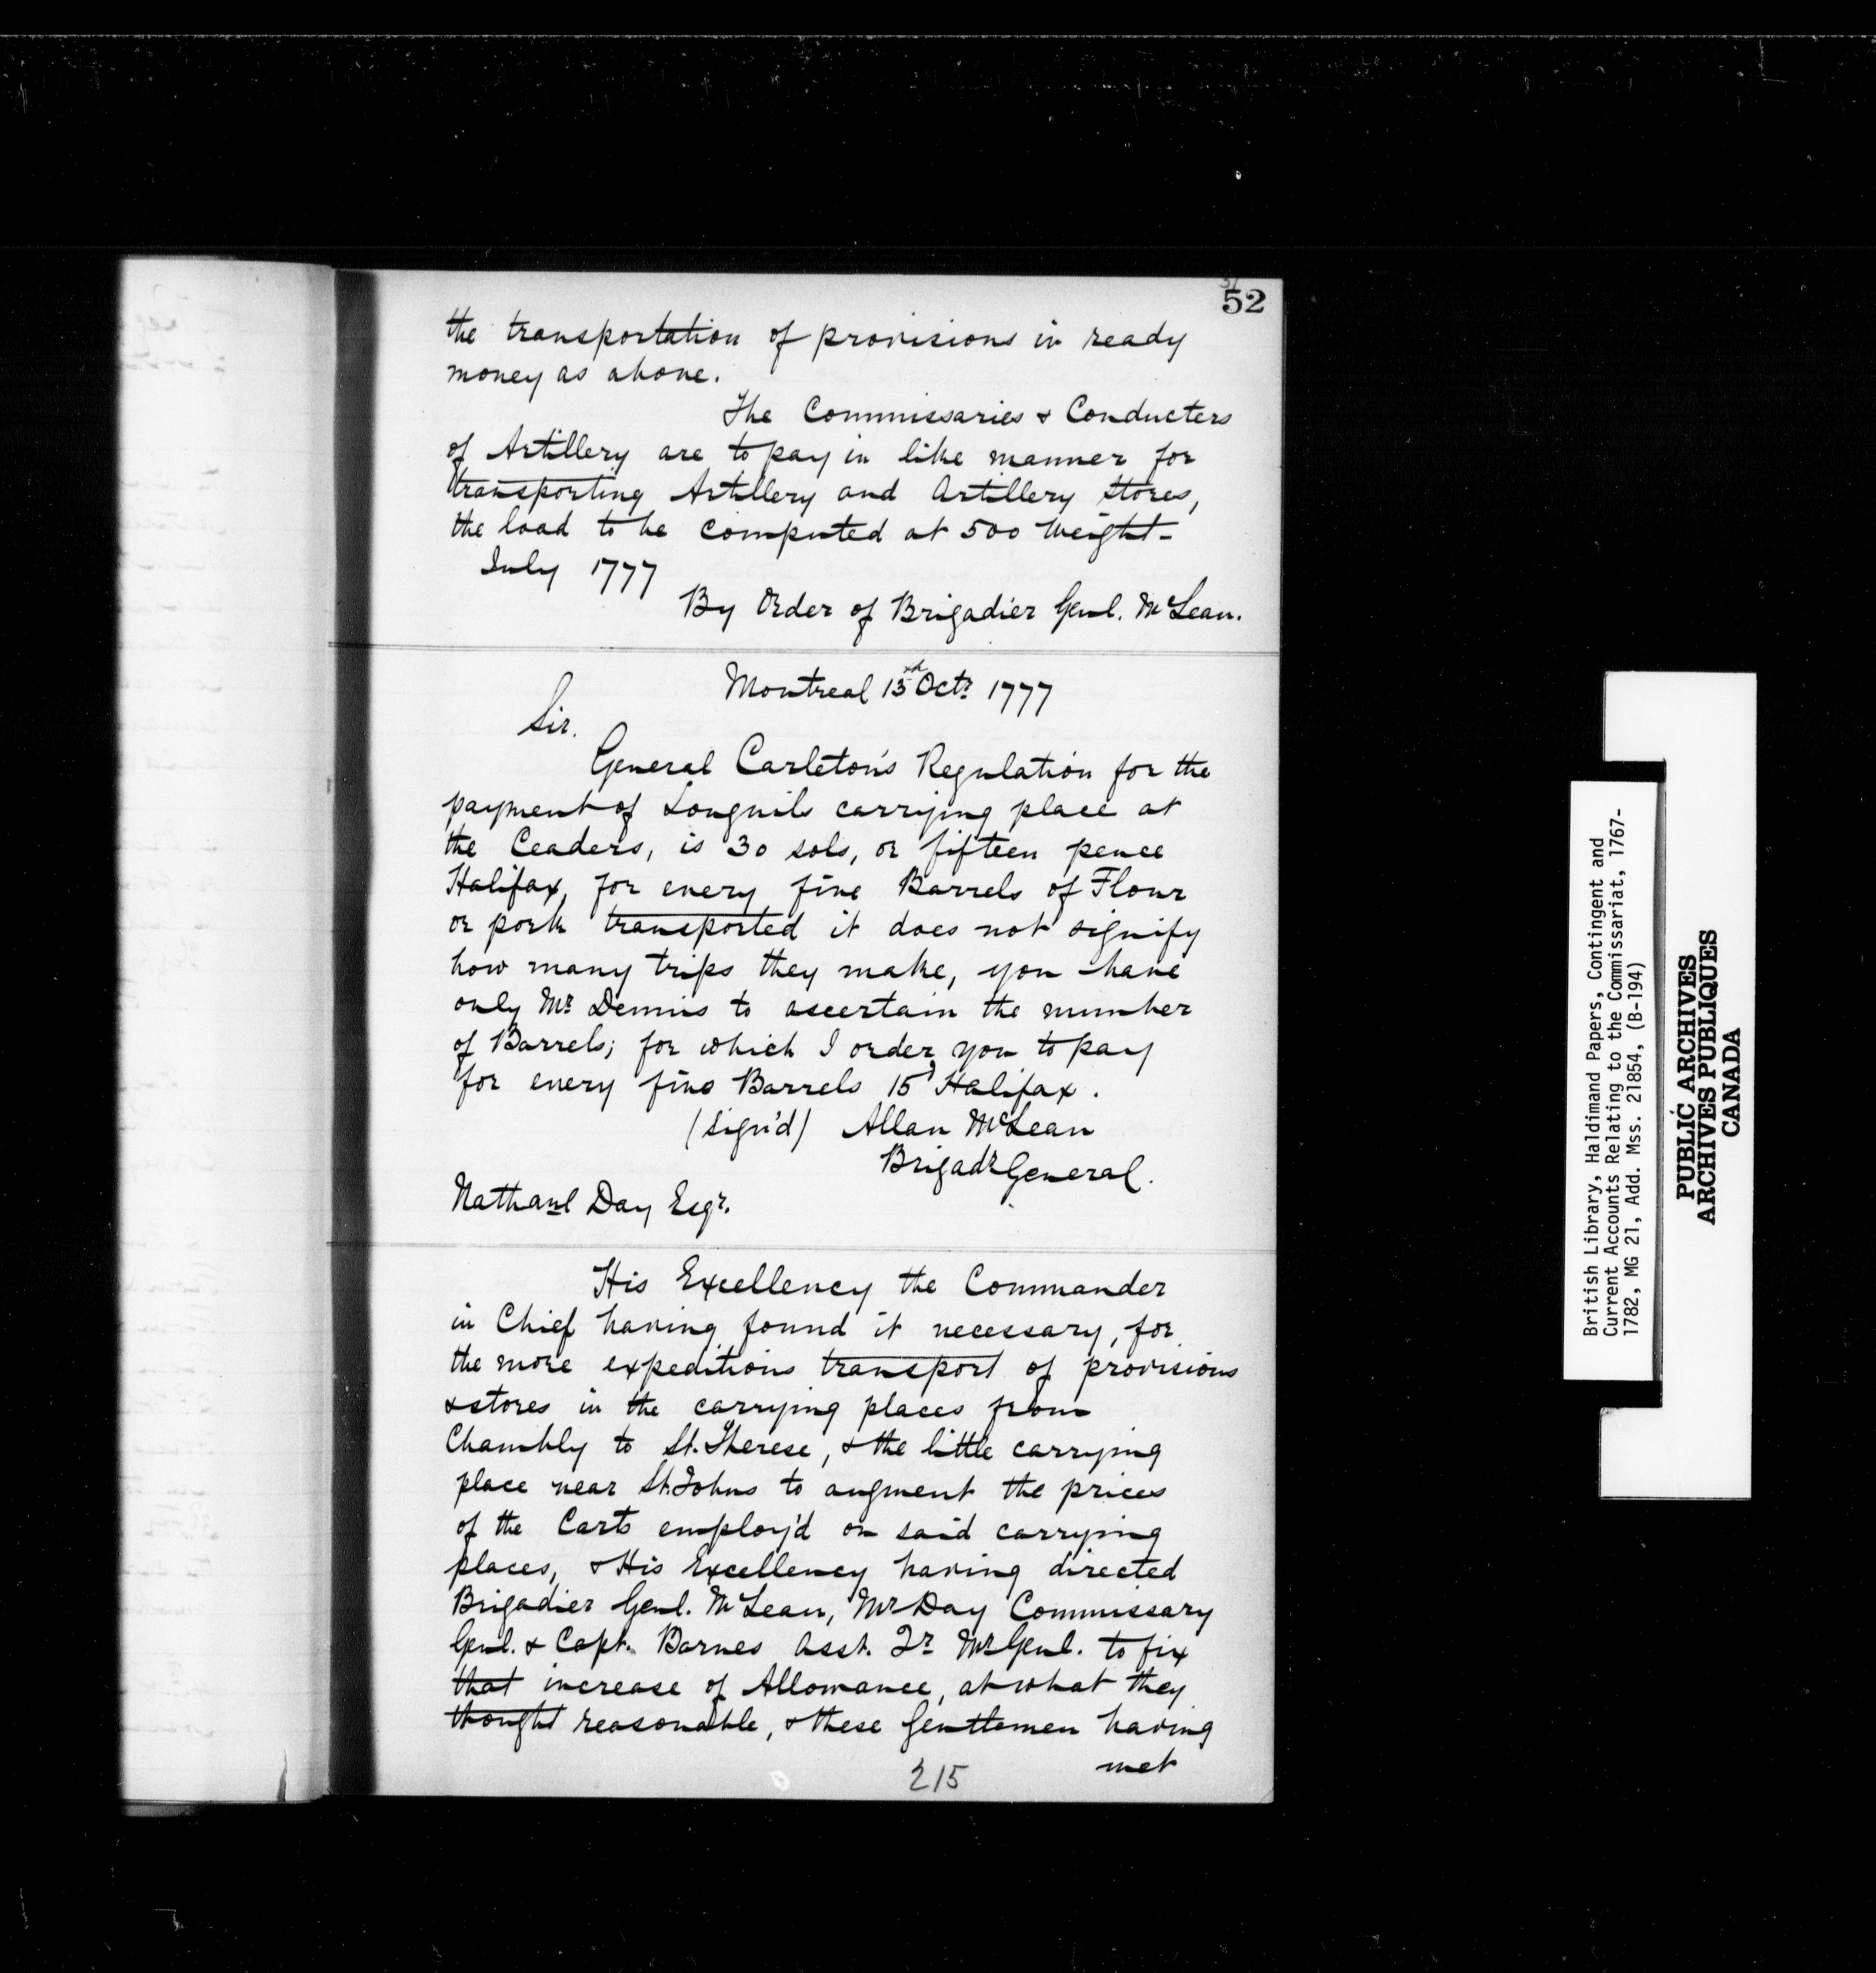 52
the transportation of provisions in ready
money as above.
The Commissaries & Conducters
of Artillery are to pay in like manner for
transporting Artillery and Artillery stores,
the load to be computed at 500 Weight-
July 1777
By Order of Brigadier Genl. McLean.
Montreal 13th Octr 1777
Sir.
General Carleton's Regulation for the
payment of Longuils carrying place at
the Ceaders, is 30 sols, or fifteen pence
Halifax, for every five Barrels of Flour
or pork transported it does not signify
how many trips they make, you have
only Mr Dennis to ascertain the number
of Barrels; for which I order you to pay
for every five Barrels 15d Halifax.
(sign'd) Allan McLean
Brigadr General.
Nathanl Day Esqr.
His Excellency the Commander
in Chief having found it necessary, for
the more expeditious transport of provisions
& stores in the carrying places from
Chambly to St. Therese, & the little carrying
place near St. Johns to augment the prices
of the Carts employ'd on said carrying
places, & His Excellency having directed
Brigadier Genl. McLean, Mr Day Commissary
Genl. & Capt. Barnes Asst. Qr Mr Genl. to fix
that increase of Allowance, at what they
thought reasonable, & these Gentlemen having
met
215
British Library, Haldimand Papers, Contingent and
Current Accounts Relating to the Commissariat, 1767-
1782, MG 21, Add. Mss. 21854, (B-194)
PUBLIC ARCHIVES
ARCHIVES PUBLIQUES
CANADA